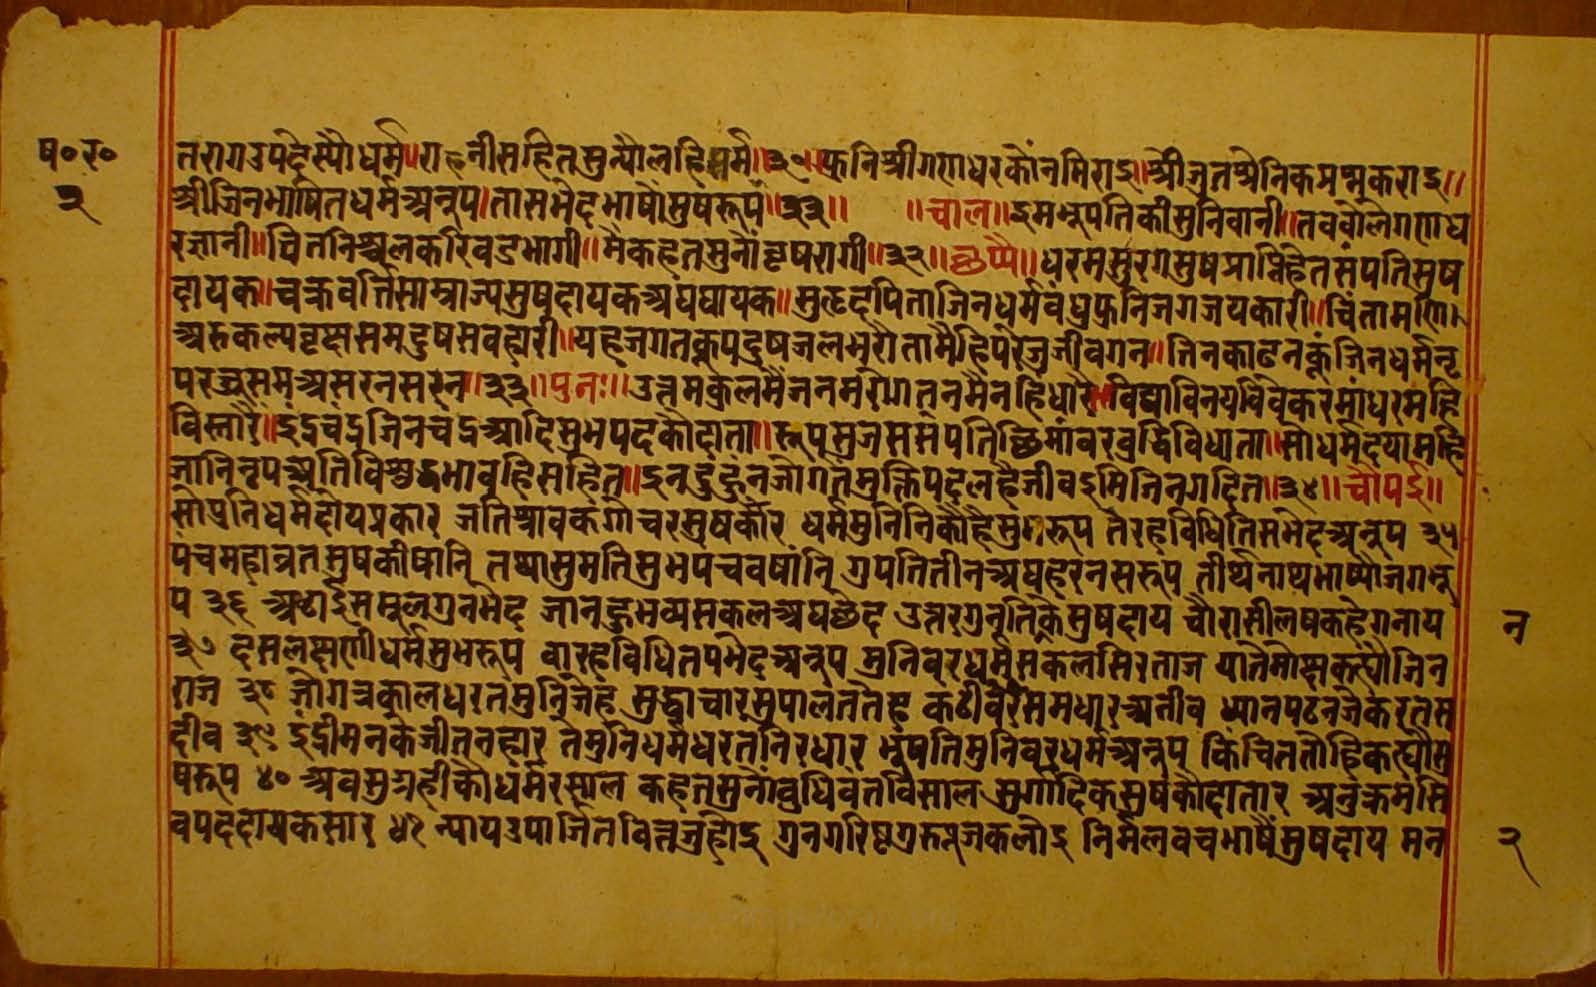 ष॰र॰
२
तरागउपदेस्यौधर्म॥राइनीसहितसुन्यौलहिसर्म॥३०॥फुनिश्रीगणधरकौंनमिराइ॥श्रीजुतश्रेनिकप्रभूकराइ॥
श्रीजिनभाषितधर्मअनूप॥तासभेदभाषौसुषरूप॥३१॥ ॥चाल॥इमभूपतिकीसुनिवानी॥तवबोलेगणध
रज्ञानी॥चितनिश्चलकरिवडभागी॥मैकहतसुनौवृषरागी॥३२॥छप्पै॥धरमसुरगसुषप्राप्तिहेतसंपतिसुष
दायक॥चक्रवर्त्तिसाम्राज्यसुषदायकअघघायक॥सुहृदपिताजिनधर्मवंधुफुनिजगजयकारी॥चिंतामणि
अरुकल्पवृक्षसमदुषसवहारी॥यहजगतकूपदुषजलभरौतामैहिपरेजुजीवगन॥तिनकाढनकूंजिनधर्मनृ
परज्जुसमअसरनसरन॥३३॥पुनः॥उत्तमकुलमैजनमरोगतनमैनहिधारै॥विद्याविनयविवेकरमांधरमहि
विस्तारै॥इंद्रचंद्रजिनचंद्रआदिसुभपदकौदाता॥रूपसुजससंपतिछिमांवरवुद्धिविधाता॥सोधर्मदयामहि
जानिनृपअतिविशुद्धभावहिसहित॥इनदुहुंनजोगतेमुक्तिपदलहैजीवइमिजिनगदित॥३४॥चौपई॥
सोपुनिधर्मदोयप्रकार जतिश्रावकगोचरसुषकार धर्ममुनिनिकौहैसुभरूप तेरहविधितिसभेदअनूप ३५
पंचमहाव्रतसुषकीषानि तथासुमतिसुभपंचवषांनि गुपतितीनअघहरनसरूप तीर्थनाथभाष्यौजगभू
प ३६ अठाईससमूलगुनभेद जानहुभव्यसकलअघछेद उत्तरगुनतिकेसुषदाय चौरासीलषकहेगनाय
३७ दसलक्षणीधर्मसुभरूप वारहविधितपभेदअनूप मुनिवरधर्मसकलसिरताज यातैमोक्षकह्यौजिन
राज ३८ जोगत्रकालधरतमुनिजेह सुद्धाचारसुपालततेह कटीवैरसमधारअतीव ध्यानपठनजेकरतस
दीव ३९ इंद्रीमनकेजीतनहार तेमुनिधर्मधरतनिरधार भूपतिमुनिवरधर्मअनूप किंचिततोहिकह्यौसु
षरूप ४० अवसुग्रहीकौधर्मरसाल कहतसुनोवुधिवंतविसाल सुर्गादिकसुषकौदातार अनुक्रमसि
वपददायकसार ४१ न्यायउपार्जितवित्तजुहोइ गुनगरिष्टगुरुपूजकलोइ निर्मलवचभाषैसुषदाय मन
न
२